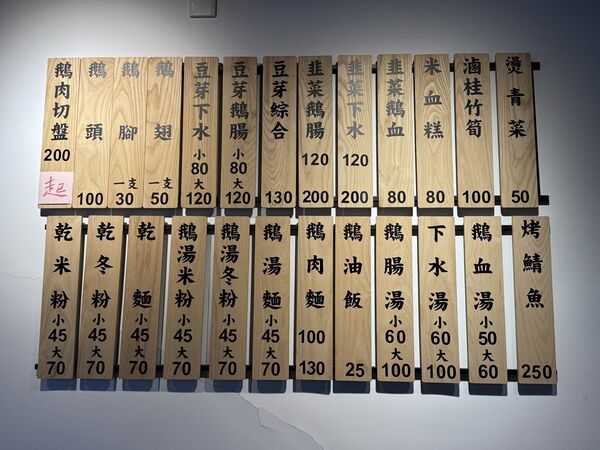 鵝肉切盤 200 起
鵝頭 100
鵝腳 一支 30
鵝翅 一支 50
豆芽下水 小 80 大 120
豆芽鵝腸 小 80 大 120
豆芽綜合 130
韭菜鵝腸 120 200
韭菜下水 120 200
韭菜鵝血 80
米血糕 80
滷桂竹筍 100
燙青菜 50
乾米粉 小 45 大 70
乾冬粉 小 45 大 70
乾麵 小 45 大 70
鵝湯米粉 小 45 大 70
鵝湯冬粉 小 45 大 70
鵝湯麵 小 45 大 70
鵝肉麵 100 130
鵝油飯 25
鵝腸湯 小 60 大 100
下水湯 小 60 大 100
鵝血湯 小 50 大 60
烤鯖魚 250